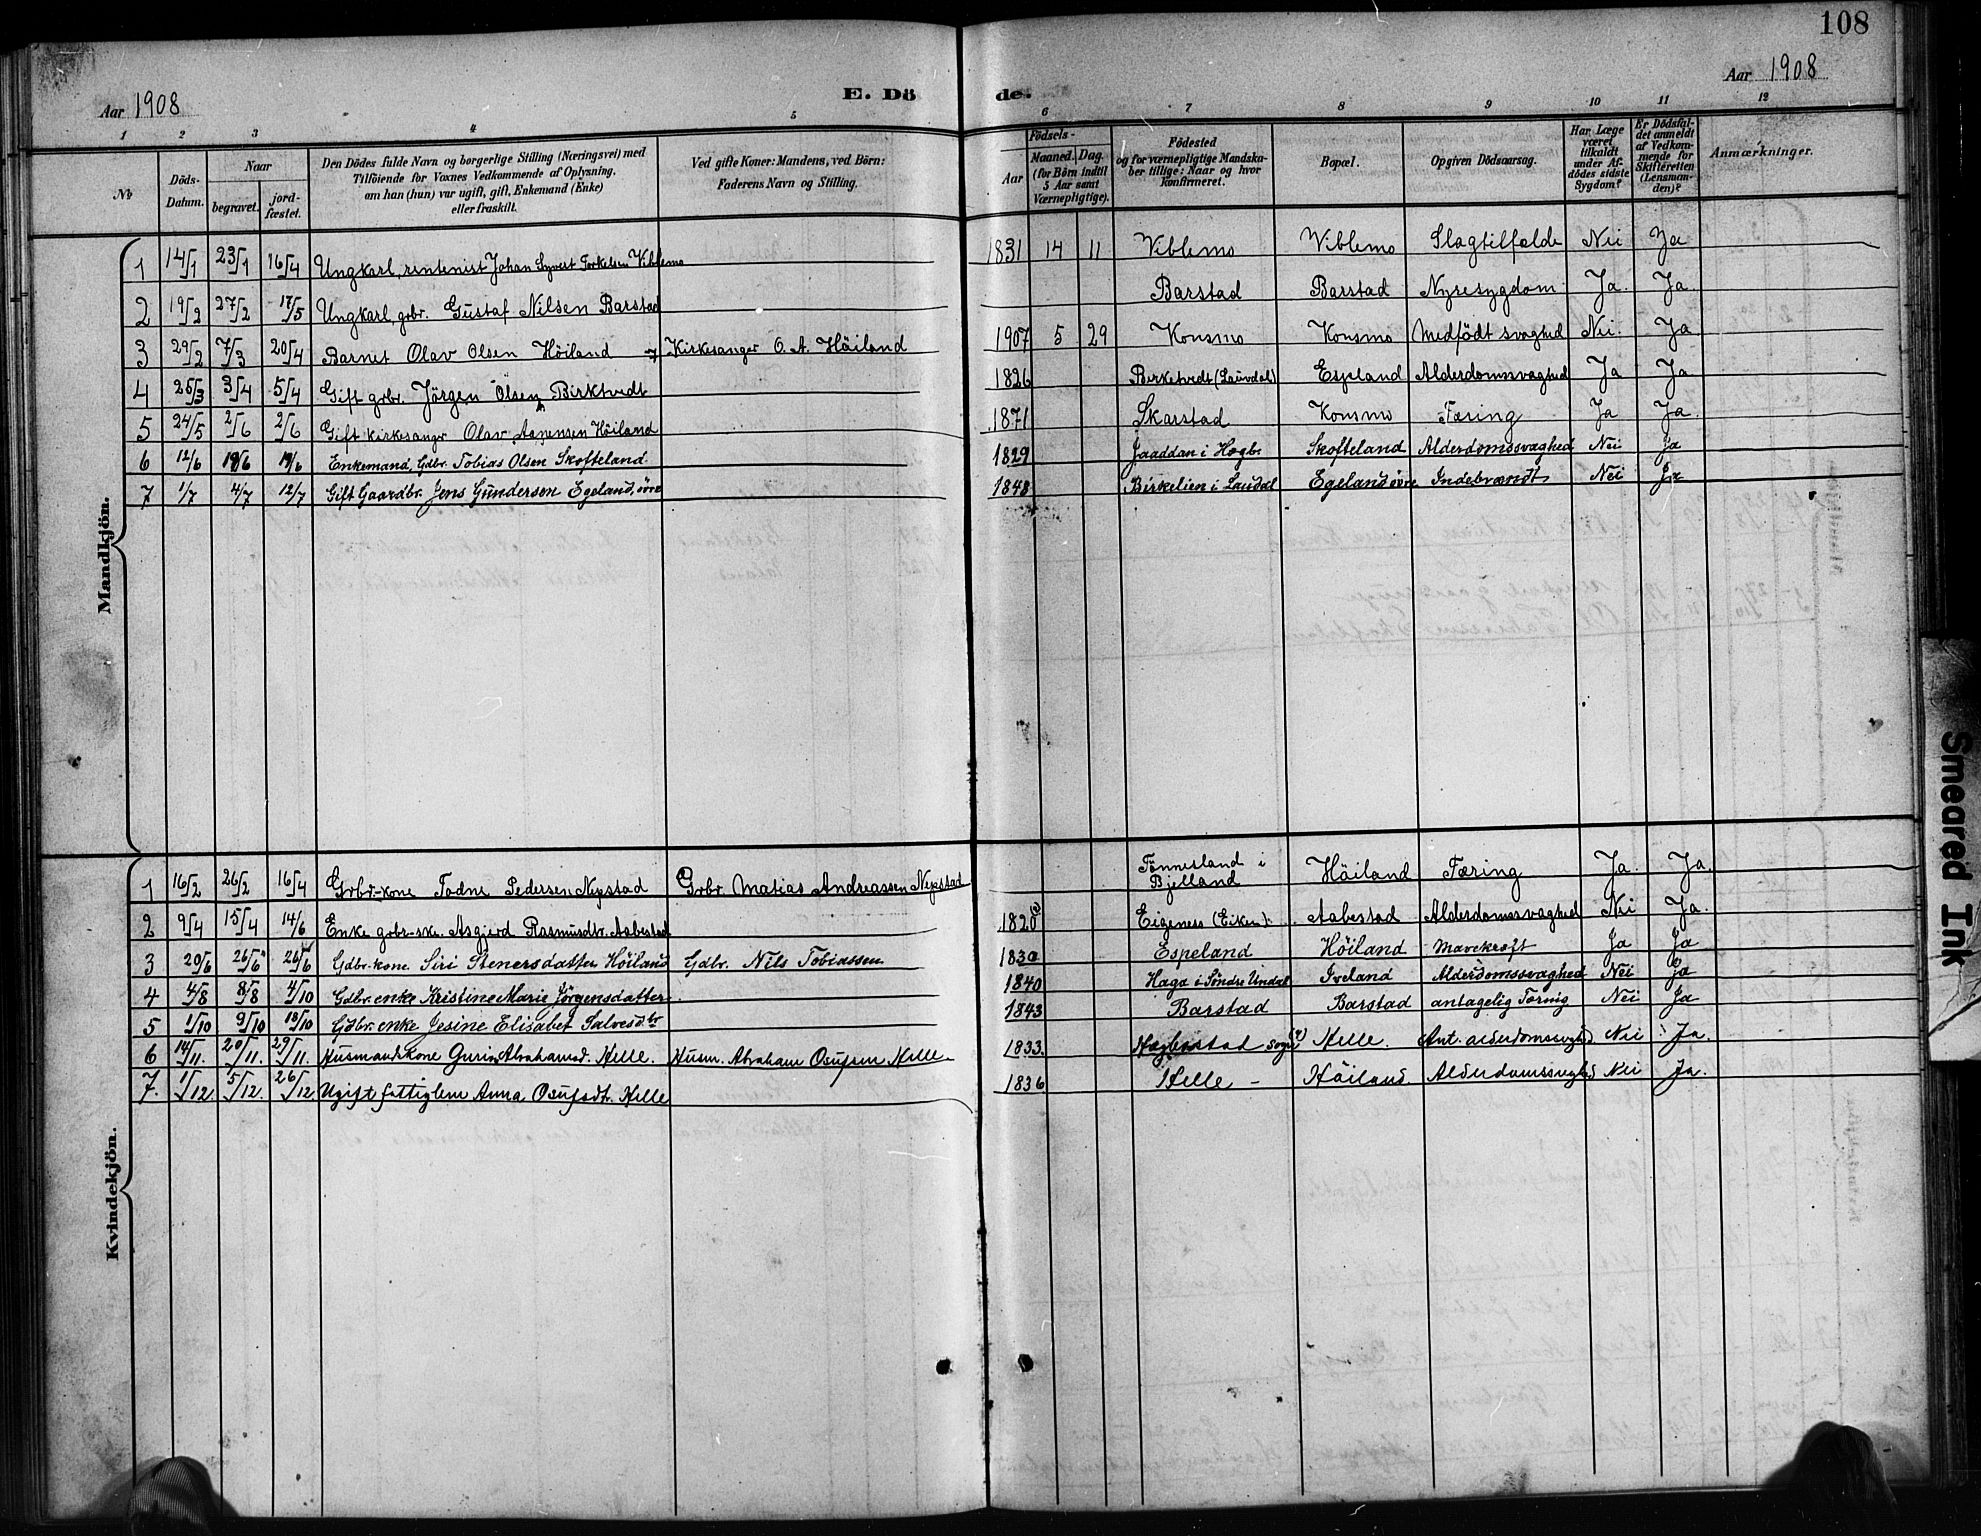 108
Aar 1908
E. Dö de.
Aar 1908
1 2 3 4 5 6 7 8 9 10 11 12
No
Döds-Datum.
Naar
begravet.
jord-fæstet.
Den Dödes fulde Navn og borgerlige Stilling (Næringsvei) med
Tilföiende for Voxnes Vedkommende af Oplysning,
om han (hun) var ugift, gift, Enkemand (Enke)
eller fraskilt.
Ved gifte Koner: Mandens, ved Börn:
Faderens Navn og Stilling.
Födsels-
Aar
Maaned. Dag.
(for Börn indtil
5 Aar samt
Værnepligtige).
Födested
og for værnepligtige Mandska-
ber tillige: Naar og hvor
konfirmeret.
Bopæl.
Opgiven Dödsaarsag.
Har Læge
været
tilkaldt
under Af-
dödes sidste
Sygdom?
Er Dödsfal-
det anmeldt
af Vedkom-
mende for
Skifteretten
(Lensman-
den)?
Anmærkninger.
Mandkjön.
1 14/1 23/1 16/4 Ungkarl, rentenist Johan Syvert Torkelsen Viblemo 1831 14 11 Viblemo Viblemo Slagtilfælde Nei Ja
2 19/2 27/2 17/5 Ungkarl, grbr. Gustaf Nilsen Barstad Barstad Barstad Nyresygdom Ja. Ja.
3 29/2 7/3 20/4 Barnet Olav Olsen Höiland Kirkesanger O. A. Häiland 1907 5 29 Konsmo Konsmo Medfödt svaghed Nei. Ja.
4 25/3 3/4 5/4 Gift grbr. Jörgen Olsen Birktvedt 1826 Birketvedt (Laudal) Espeland Alderdomssvaghed Ja Ja
5 24/5 2/6 2/6 Gift kirkesanger Olav Aanensen Höiland 1871 Skarstad Konsmo Tæring Ja Ja.
6 12/6 19/6 19/6 Enkemand, Gdbr. Tobias Olsen Skofteland. 1829 Jaaddan i Hægb. Skofteland Alderdomssvaghed Nei Ja
7 1/7 4/7 12/7 Gift Gaardbr. Jens Gundersen Egeland, övre 1848 Birkelien i Laudal Egeland övre Indebrændt Nei Ja
Kvindekjön.
1 16/2 26/2 16/4 Grbr.-kone Todne Pedersen Nepstad Grbr. Matias Andreassen Nepstad Tönnesland i Bjelland Höiland Tæring Ja. Ja.
2 9/4 15/4 14/6 Enke grbr-ske. Asgjerd Rasmusdtr. Aabestad 1820 Eigeness (Eiken). Aabestad Alderdomssvaghed Nei Ja.
3 20/6 26/6 26/6 Gdbr.-kone. Siri Stenersdatter Höiland Gdbr. Nils Tobiassen 1830 Espeland Höiland Mavekræft Ja Ja
4 4/8 8/8 4/10 Gdbr. enke Kristine Marie Jörgensdatter 1840 Haga i Söndre Undal Iveland Alderdomssvaghed Nei Ja
5 1/10 9/10 13/10 Gdbr. enke Jesine Elisabet Salvesdtr 1843 Barstad Barstad antagelig Tæring Nei Ja
6 14/11. 20/11. 29/11. Husmandskone Gurin Abrahamsd. Hille. Husm. Abraham Osufsen Hille. 1833. Hægbostad sogn (?) Helle. Ant. alderdomssvaghd Nei Ja.
7. 1/12 5/12. 26/12 Ugift fattiglem Anna Osufsdtr. Hille 1836 Helle - Häiland. Alderdomssvaghd Nei Ja.
Smeared Ink